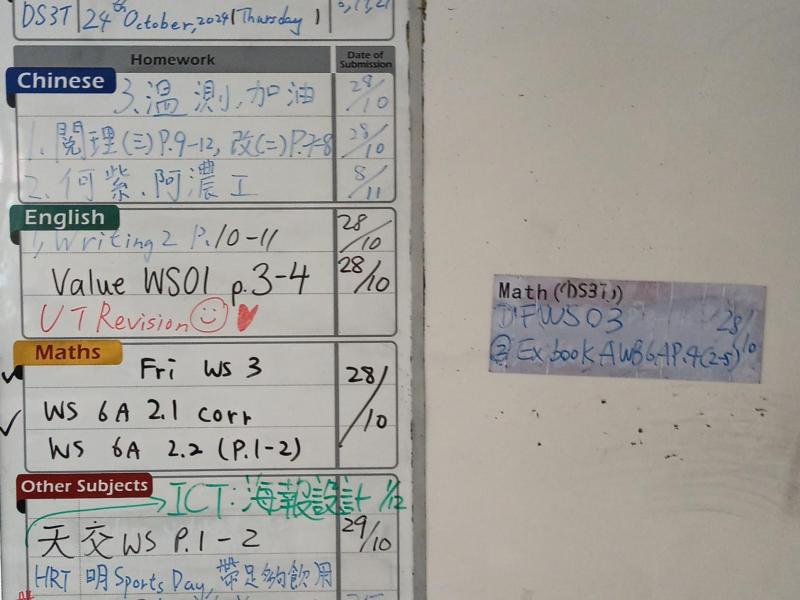 DS3T 24th October, 2024 (Thursday)
Homework Date of Submission
Chinese
3. 溫測, 加油 28/10
1. 閱理(三)P.9-12, 改(二)P.7-8 28/10
2. 何紫、阿濃工 8/11
English
1, Writing 2 P.10-11 28/10
Value WS01 p.3-4 28/10
UT Revision
Maths
Fri WS 3 28/10
WS 6A 2.1 corr
WS 6A 2.2 (P.1-2)
Other Subjects
ICT: 海報設計 1/12
天交 WS P.1-2 29/10
HRT 明 Sports Day, 帶足夠飲用
Math (DS3T)
FWS03 28/10
② Ex book AWB 6A P.4(2-5)